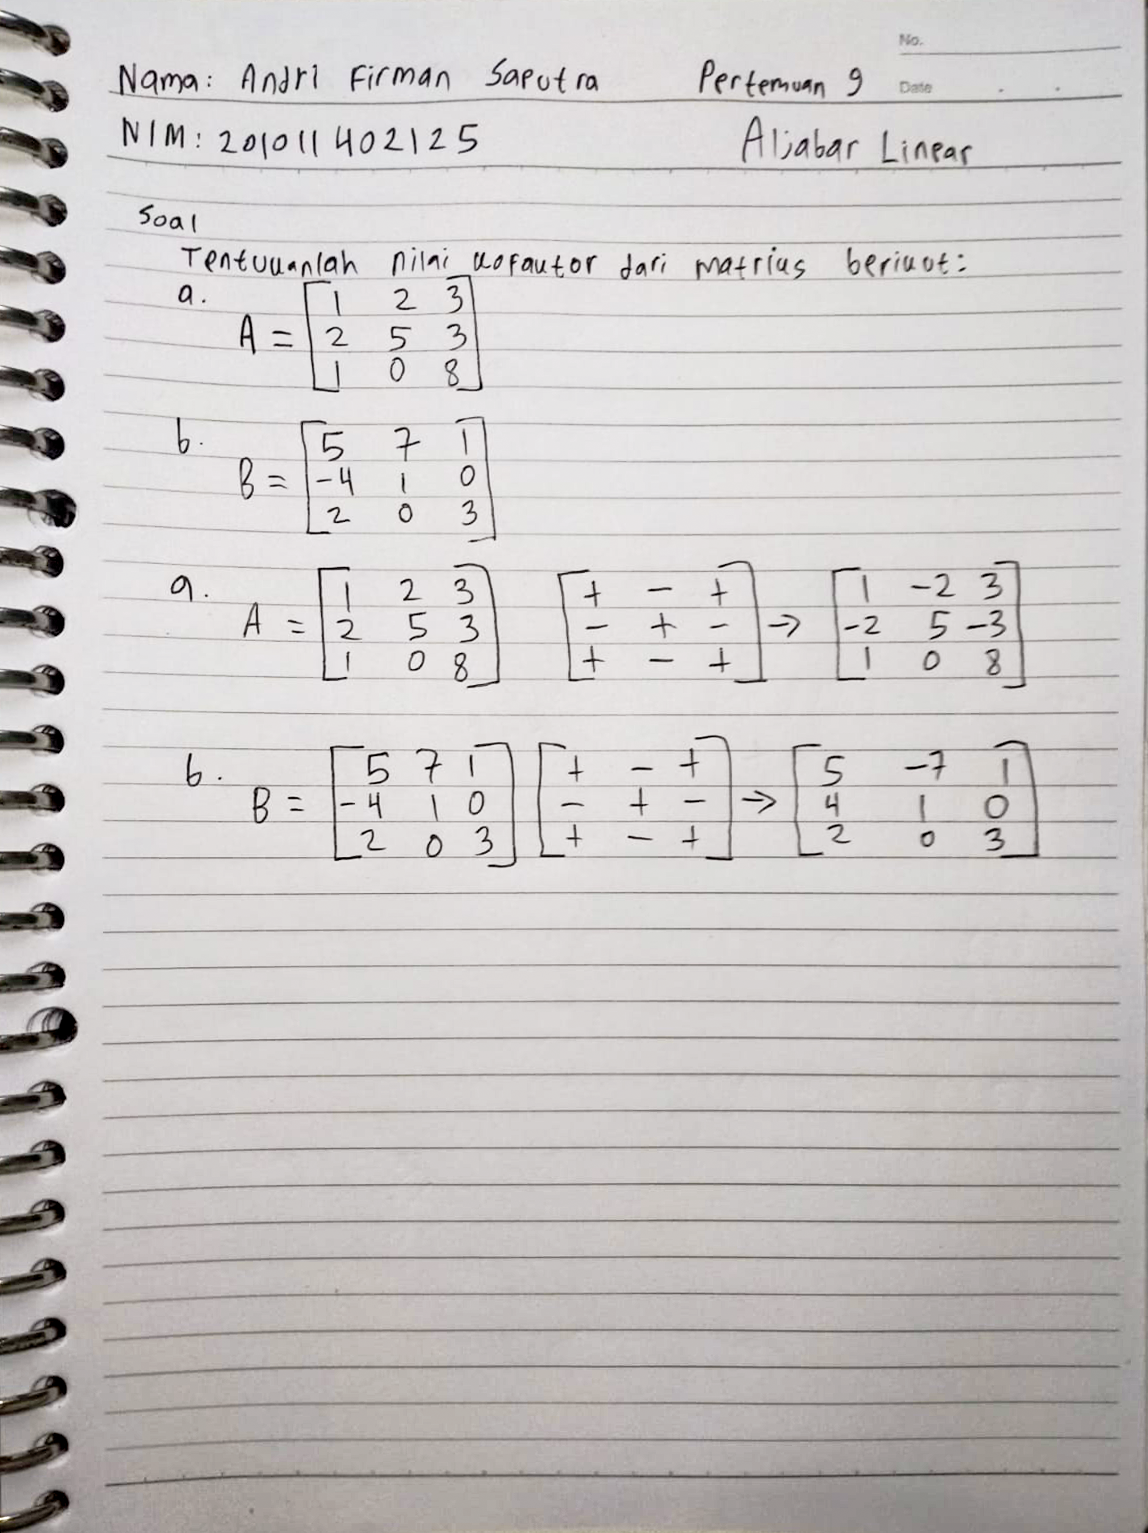 No.
Nama: Andri Firman Saputra Pertemuan 9 Date
NIM: 201011402125 Aljabar Linear
Soal
Tentukanlah nilai kofaktor dari matriks berikut:
a.
A = [1 2 3
2 5 3
1 0 8]
b.
B = [5 7 1
-4 1 0
2 0 3]
a.
A = [1 2 3 [+ - + [1 -2 3
2 5 3 - + - → -2 5 -3
1 0 8] + - +] 1 0 8]
b.
B = [5 7 1 [+ - + [5 -7 1
-4 1 0 - + - → 4 1 0
2 0 3] + - +] 2 0 3]